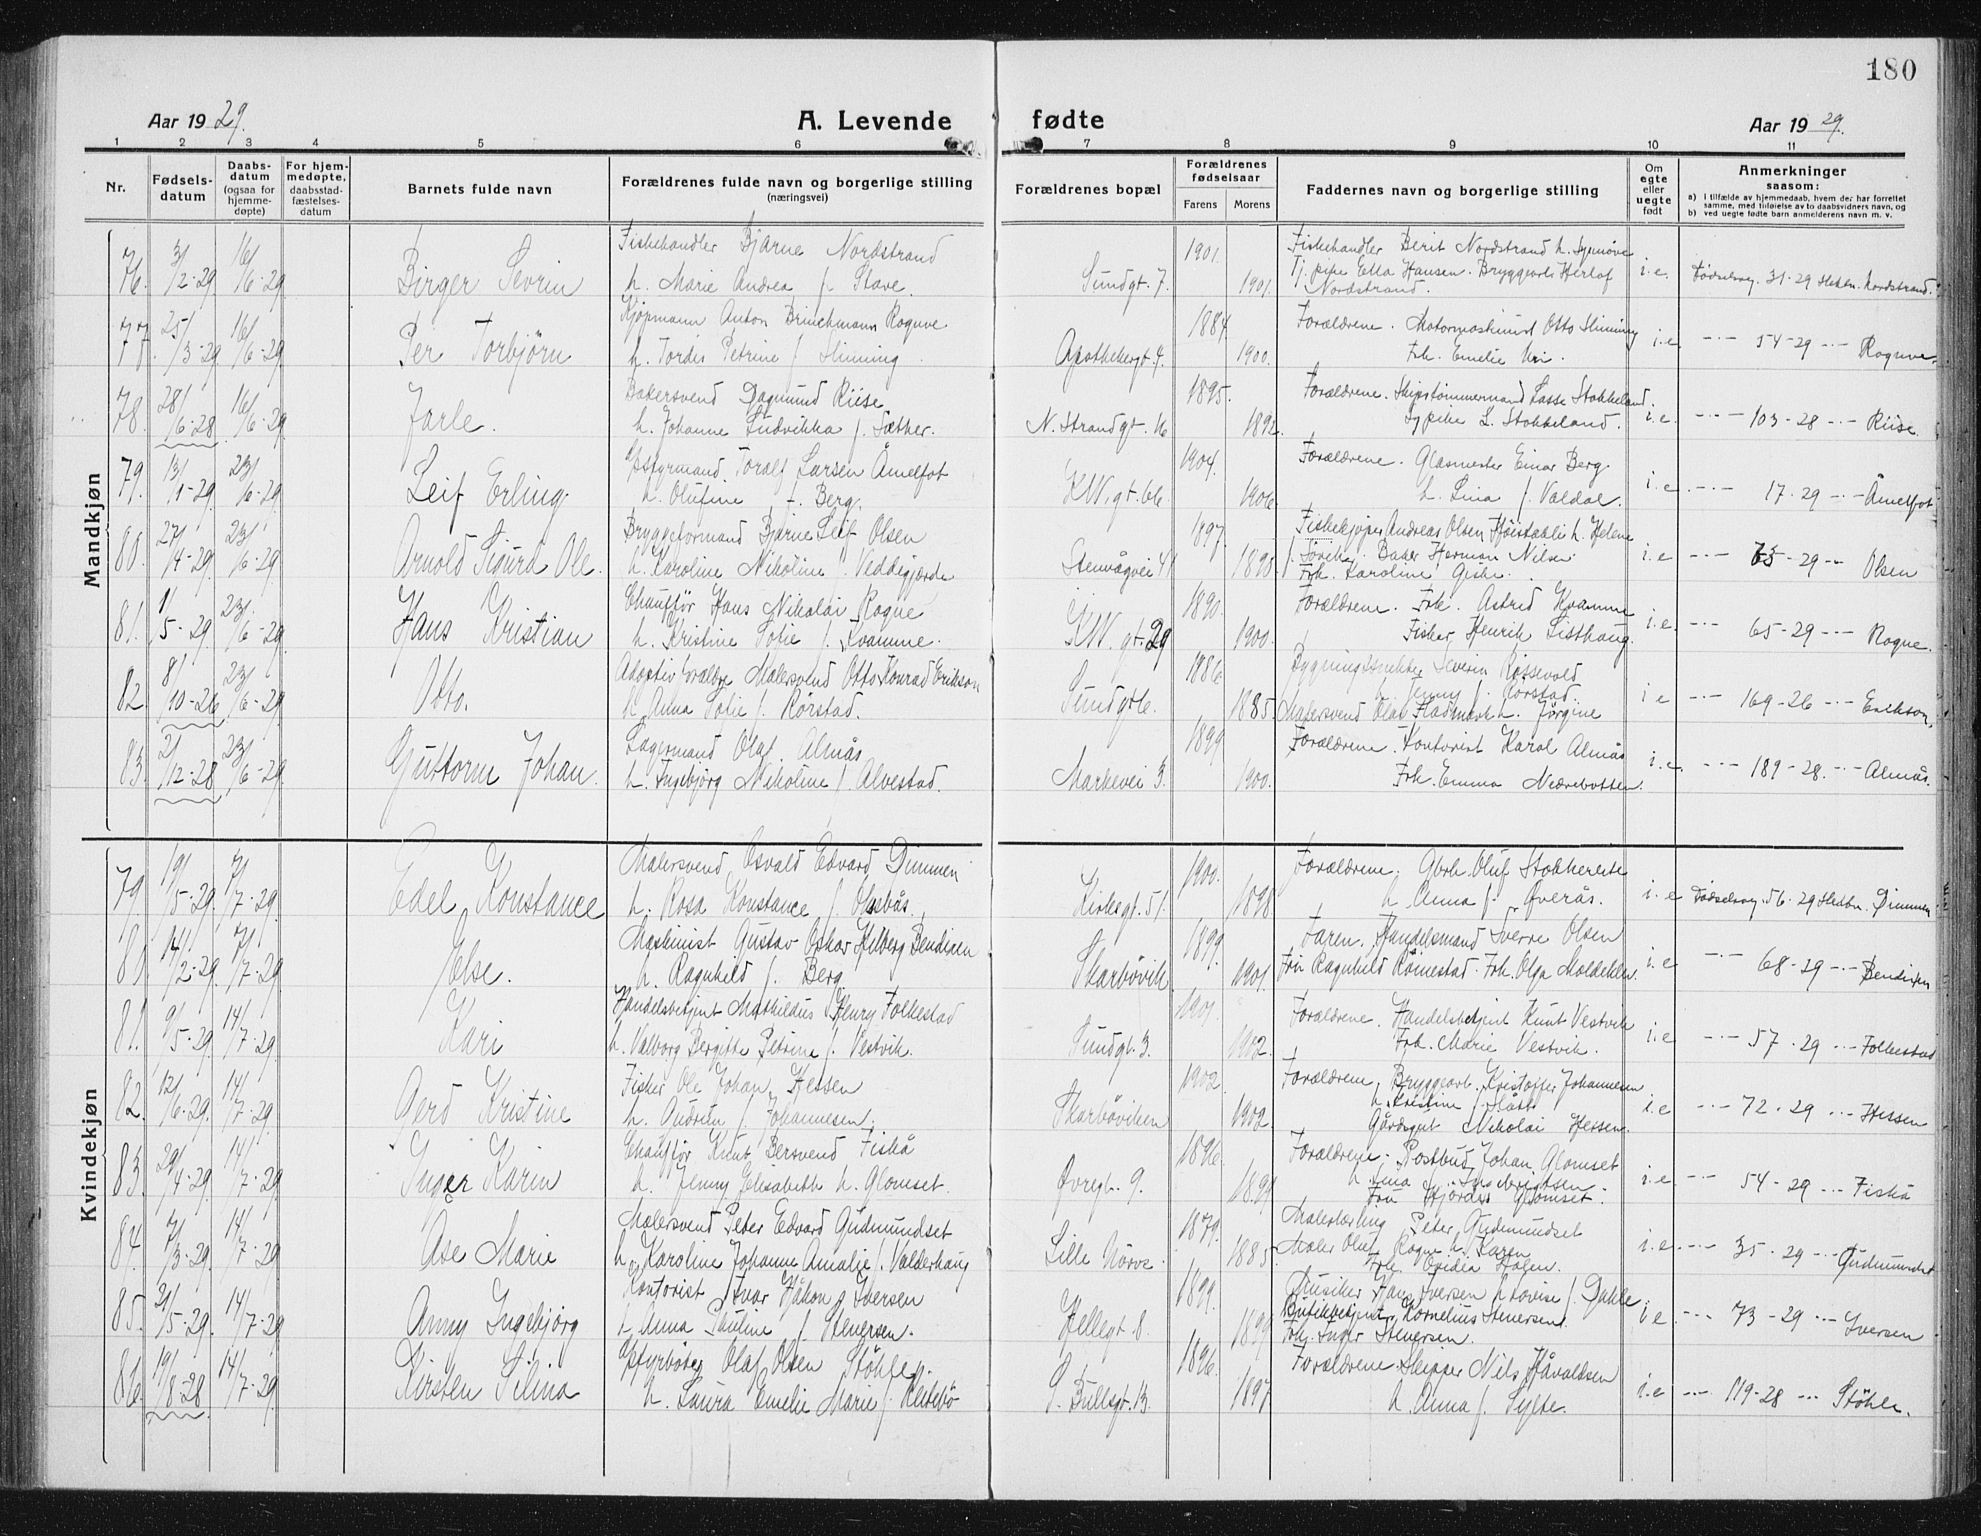 180
Aar 1929.
A. Levende fødte
Aar 1929.
1 2 3 4 5 6 7 8 9 10 11
Nr.
Fødsels-
datum
Daabs-
datum
(ogsaa for
hjemme-
døpte)
For hjem-
medøpte,
daabsstad-
fæstelses-
datum
Barnets fulde navn
Forældrenes fulde navn og borgerlige stilling
(næringsvei)
Forældrenes bopæl
Forældrenes
fødselsaar
Farens Morens
Faddernes navn og borgerlige stilling
Om
egte
eller
uegte
født
Anmerkninger
saasom:
a) I tilfælde av hjemmedaab, hvem der har forrettet
samme, med tilføielse av to daabsvidners navn, og
b) ved uegte fødte barn anmelderens navn m. v.
Mandkjøn
76. 3/2-29 16/6-29 Birger Sevrin
Fiskehandler Bjarne Nordstrand
h. Marie Andrea f. Stave.
Sundgt. 7. 1901. 1901.
Fiskehandler Berit Nordstrand h. Synnøve
Tj.pike Etta Hansen. Bryggearb. Herlof
Nordstrand.
i.e. Fødselsreg. 31-29 Nordstrand.
77. 25/3-29 16/6-29 Per Torbjörn
Kjøpmann Anton Brinchmann Rogne
h. Tordis Petrine f. Slinning
Apothekergt. 4. 1884. 1900.
Forældrene. Motormaskinist Otto Slinning
Frk. Emelie Uri.
i.e. -"- 54-29 -"- Rogne.
78. 28/6-28 16/6-29 Jarle.
Bakersvend Dagmund Riise
h. Johanne Ludvikka f. Sæther.
N. Strandgt. 16 1895. 1892.
Forældrene. Skipstömmermand Lasse Stokkeland.
Sypike L. Stokkeland.
i.e. -"- 103-28 -"- Riise
79. 13/1-29 23/6-29 Leif Erling.
Styrmand Toralf Larsen Åmelfot
h. Olufine f. Berg.
K.W.gt. 66 1904. 1906.
Forældrene. Glasmester Einar Berg.
h. Lina f. Valdal.
i.e. -"- 17-29 -"- Åmelfot
80. 27/4-29 23/6-29 Arnold Sigurd Ole.
Bryggeformand Bjarne Leif Olsen
h. Karoline Nikoline f. Veddegjerde
Stenvågvei 41 1897. 1895.
Fiskekjøper Andreas Olsen h. Helene
f. Søvik. Baker Herman Nilsen
Frk. Karoline Giske.
i.e -"- 75-29 -"- Olsen
81. 1/5-29 23/6-29 Hans Kristian
Chauffør Hans Nikolai Rogne
h. Kristine Sofie f. Kvamme.
K.W. gt. 29 1890. 1900.
Forældrene. Frk. Astrid Kvamme
Fisker Henrik Listhaug.
i.e. -"- 65-29 -"- Rogne.
82. 8/10-26 23/6-29 Otto.
Adoptivforældre Malersvend Otto Konrad Erikson
h. Anna Sofie f. Rörstad.
Sundgt 6. 1886. 1885.
Severin Rossevold
h. Jenny f. Rörstad.
Malersvend Olav Fladmark h. Jörgine
i e -"- 169-26 -"- Erikson.
83. 2/12-28 23/6-29 Guttorm Johan.
Lagermand Olaf Almås
h. Ingebjörg Nikoline f. Alvestad.
Markevei 3. 1899 1900.
Forældrene. Kontorist Karol Almås
Frk. Emma Nedrebotten.
i.e. -"- 189-28. -"- Almås.
Kvindekjøn
79. 19/5-29. 7/7-29 Edel Konstance
Malersvend Osvald Edvard Dimmen
h. Rosa Konstance f. Olsbås.
Kirkegt. 51. 1900. 1898
Forældrene. Gbrk. Oluf Stokkereite
h Anna f. Øverås.
i e Fødselsreg. 56. 29 Dimmen
80. 14/2-29. 7/7-29 Else.
Maskinist Gustav Oskar Hilberg Bendixen
h. Ragnhild f. Berg
Skarbövik 1899. 1901.
Faren. Handelsmand Sverre Olsen
Frøk Ragnhild Römestad. Frk. Olga Moldeklev.
i.e -"- 68-29 -"- Bendixen
81. 9/5-29. 14/7-29 Kari
Handelsbetjent Mathildus Henry Folkestad
h. Valborg Bergitte Petrine f. Vestvik.
Sundgt. 3. 1901. 1902.
Forældrene. Handelsbetjent Knut Vestvik
Frk. Marie Vestvik.
i.e -"- 57-29 -"- Folkestad
82. 12/6-29. 14/7-29 Gerd Kristine
Fisker Ole Johan Hessen
h. Gudrun f. Johannesen.
Skarböviken 1902. 1902.
Forældrene, Bryggearb. Kristoffer Johannesen
h. Kristine f. Slåtte
Gårdsgut Nikolai Hessen.
i.e -"- 72-29 -"- Hessen
83. 29/4-29. 14/7-29 Inger Karin
Chauffør Knut Bersvend Fiskå
h. Jenny Elisabeth h. Glomset.
Øvregt. 9. 1896. 1899.
Forældrene. Postbud Johan Glomset
Fru Hjördis Glomset.
i.e. -"- 54-29 -"- Fiskå
84. 7/3-29. 14/7-29 Åse Marie
Malersvend Peter Edvard Gudmundset
h. Karoline Johanne Amalie f. Valderhaug
Lille Nörve. 1879. 1885.
Malerlærling Peter Gudmundset
Maler Oluf Rogne h. Karen
Frk. Ovidia Holen.
i.e. -"- 35-29 -"- Gudmundset
85. 21/5-29. 14/7-29 Anny Ingebjörg
Kontorist Ivar Håkon Iversen
h. Anna Pauline f. Stenersen.
Hellegt. 8. 1899. 1899
Musiker Hans Iversen h. Lovise f. Dahle
Butikkbetjent Kornelius Stenersen.
Frk. Inger Stenersen.
i e. -"- 73-29 -"- Iversen
86. 19/8-28 14/7-29 Kirsten Silina
Fyrbøter Olaf Olsen Stöhle.
h. Laura Emelie Marie f. Kleiebö
O. Bullsgt. 13. 1896. 1897.
Forældrene. Skipper Nils Håvaldsen
h. Anna f. Sylte.
i.e -"- 119-28 -"- Stöhle.